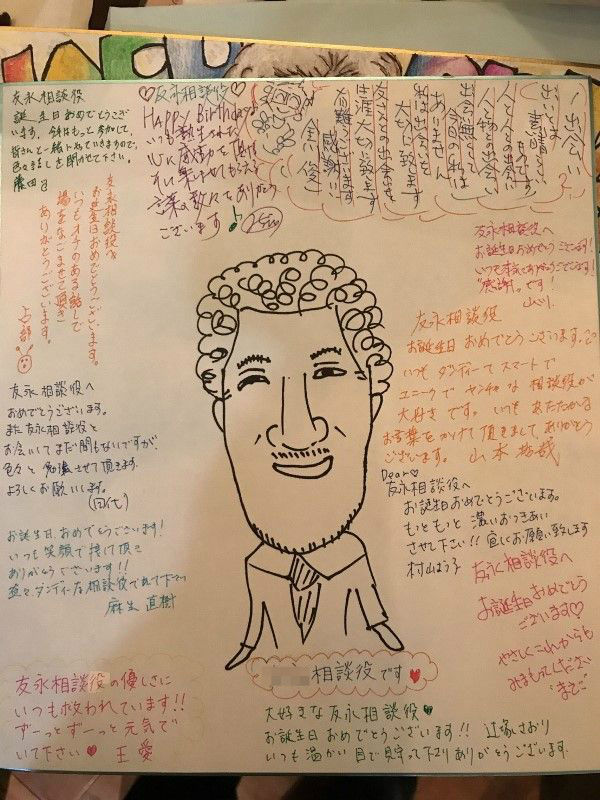 友永相談役
誕生日おめでとうござい
ます。今後はもっと参加して、
皆さんと一緒にやっていきますので、
色々な話しを聞かせて下さい。
♡友永相談役♡
Happy Birthday♪
いつも
心に感動を頂き
言葉の数々をありがとう
ございます
出会い
出会いとは
素晴らしい
人との出会いが
人を
今日の私は
ありません
私は出会いを
大切に致します
友永さんとの出会いを
生涯大切に致します
有難うございます
感謝!!
友永相談役へ
お誕生日おめでとうございます。
いつもオチのある話しで
場をなごませて頂き
ありがとうございます。
占部
友永相談役へ
お誕生日おめでとうございます!
いつも本気でありがとうございます!
"感謝"です!
友永相談役
お誕生日おめでとうございます。
いつもダンディーでスマートで
ユニークでヤンチャな相談役が
大好きです。いつもあたたかな
お言葉をかけて頂きまして、ありがとう
ございます。山本
友永相談役へ
おめでとうございます。
まだ友永相談役と
お会いしてまだ間もないですが、
色々と勉強させて頂きます。
よろしくお願いします。
(田代)
Dear♡
友永相談役へ
お誕生日おめでとうございます。
もっともっと濃いおつきあい
させて下さい!!宜しくお願い致します
お誕生日、おめでとうございます!
いつも笑顔で接して頂き
ありがとうございます!!
益々、ダンディーな相談役でいて下さい
麻生 直樹
友永相談役へ
お誕生日おめでとう
ございます♡
やさしくこれからも
みまもってください
相談役です♥
友永相談役の優しさに
いつも救われています!!
ずーっとずーっと元気で
いて下さい♥ 王 愛
大好きな友永相談役♥
お誕生日おめでとうございます!! 辻塚さおり
いつも温かい目で見守って下さりありがとうございます。